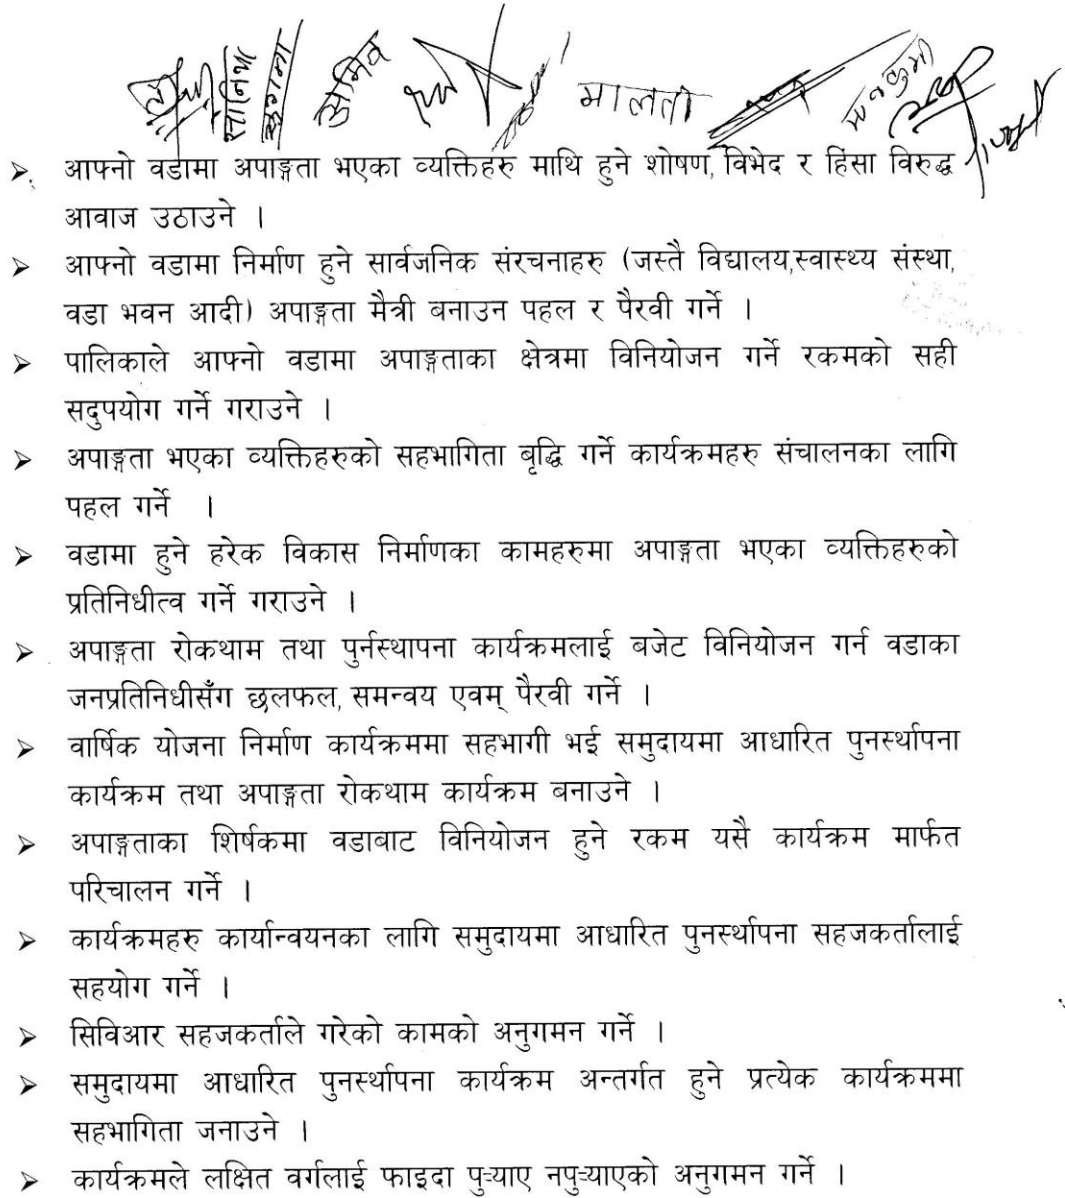 सोनिया
मालती
➢ आफ्नो वडामा अपाङ्गता भएका व्यक्तिहरु माथि हुने शोषण, विभेद र हिंसा विरुद्ध
आवाज उठाउने ।
➢ आफ्नो वडामा निर्माण हुने सार्वजनिक संरचनाहरु (जस्तै विद्यालय,स्वास्थ्य संस्था,
वडा भवन आदी) अपाङ्गता मैत्री बनाउन पहल र पैरवी गर्ने ।
➢ पालिकाले आफ्नो वडामा अपाङ्गताका क्षेत्रमा विनियोजन गर्ने रकमको सही
सदुपयोग गर्ने गराउने ।
➢ अपाङ्गता भएका व्यक्तिहरुको सहभागिता बृद्धि गर्ने कार्यक्रमहरु संचालनका लागि
पहल गर्ने ।
➢ वडामा हुने हरेक विकास निर्माणका कामहरुमा अपाङ्गता भएका व्यक्तिहरुको
प्रतिनिधीत्व गर्ने गराउने ।
➢ अपाङ्गता रोकथाम तथा पुर्नस्थापना कार्यक्रमलाई बजेट विनियोजन गर्न वडाका
जनप्रतिनिधीसँग छलफल, समन्वय एवम् पैरवी गर्ने ।
➢ वार्षिक योजना निर्माण कार्यक्रममा सहभागी भई समुदायमा आधारित पुनर्स्थापना
कार्यक्रम तथा अपाङ्गता रोकथाम कार्यक्रम बनाउने ।
➢ अपाङ्गताका शिर्षकमा वडाबाट विनियोजन हुने रकम यसै कार्यक्रम मार्फत
परिचालन गर्ने ।
➢ कार्यक्रमहरु कार्यान्वयनका लागि समुदायमा आधारित पुनर्स्थापना सहजकर्तालाई
सहयोग गर्ने ।
➢ सिविआर सहजकर्ताले गरेको कामको अनुगमन गर्ने ।
➢ समुदायमा आधारित पुनर्स्थापना कार्यक्रम अन्तर्गत हुने प्रत्येक कार्यक्रममा
सहभागिता जनाउने ।
➢ कार्यक्रमले लक्षित वर्गलाई फाइदा पुऱ्याए नपुऱ्याएको अनुगमन गर्ने ।